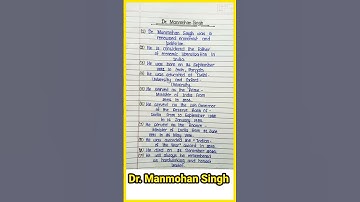 Dr. Manmohan Singh
(1) Dr. Manmohan Singh was a
renowned economist and
politician.
(2) He is considered the father
of economic liberalization in
India.
(3) He was born on 26 September
1932 in Gah, Punjab.
(4) He was educated at Delhi
University and Oxford
University.
(5) He served as the Prime
Minister of India from
2004 to 2014.
(6) He served as the
of the Reserve Bank of
India from 16 September
1982 to 14 January 1985.
(7) He served as the Finance
Minister of India from 21 June
1991 to 16 May 1996.
(8) He was awarded the "Indian
of the Year" award in
(9) He died on 26 December 2024.
(10) He will always be remembered
as hardworking and honest
leader.
Dr. Manmohan Singh